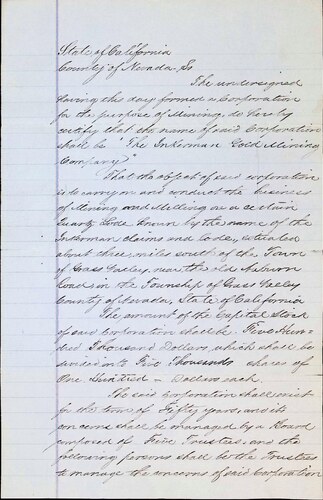 State of California
County of Nevada Ss
The undersigned
having this day formed a Corporation
for the purpose of Mining, do hereby
certify that the name of said Corporation
shall be "The Inkerman Gold Mining
Company"
That the object of said corporation
is to carry on and conduct the business
of Mining and Milling on a certain
Quartz Lode known by the name of the
Inkerman claims and Lode, situated
about three miles south of the Town
of Grass Valley, near the old Auburn
road in the Township of Grass Valley
County of Nevada, State of California
The amount of the Capital Stock
of said Corporation shall be Five Hun-
dred Thousand Dollars, which shall be
divided into Five Thousand shares of
One Hundred - Dollars each.
The said Corporation shall exist
for the term of Fifty years, and its
concerns shall be managed by a Board
composed of Five Trustees, and the
following persons shall be the Trustees
to manage the concerns of said Corporation